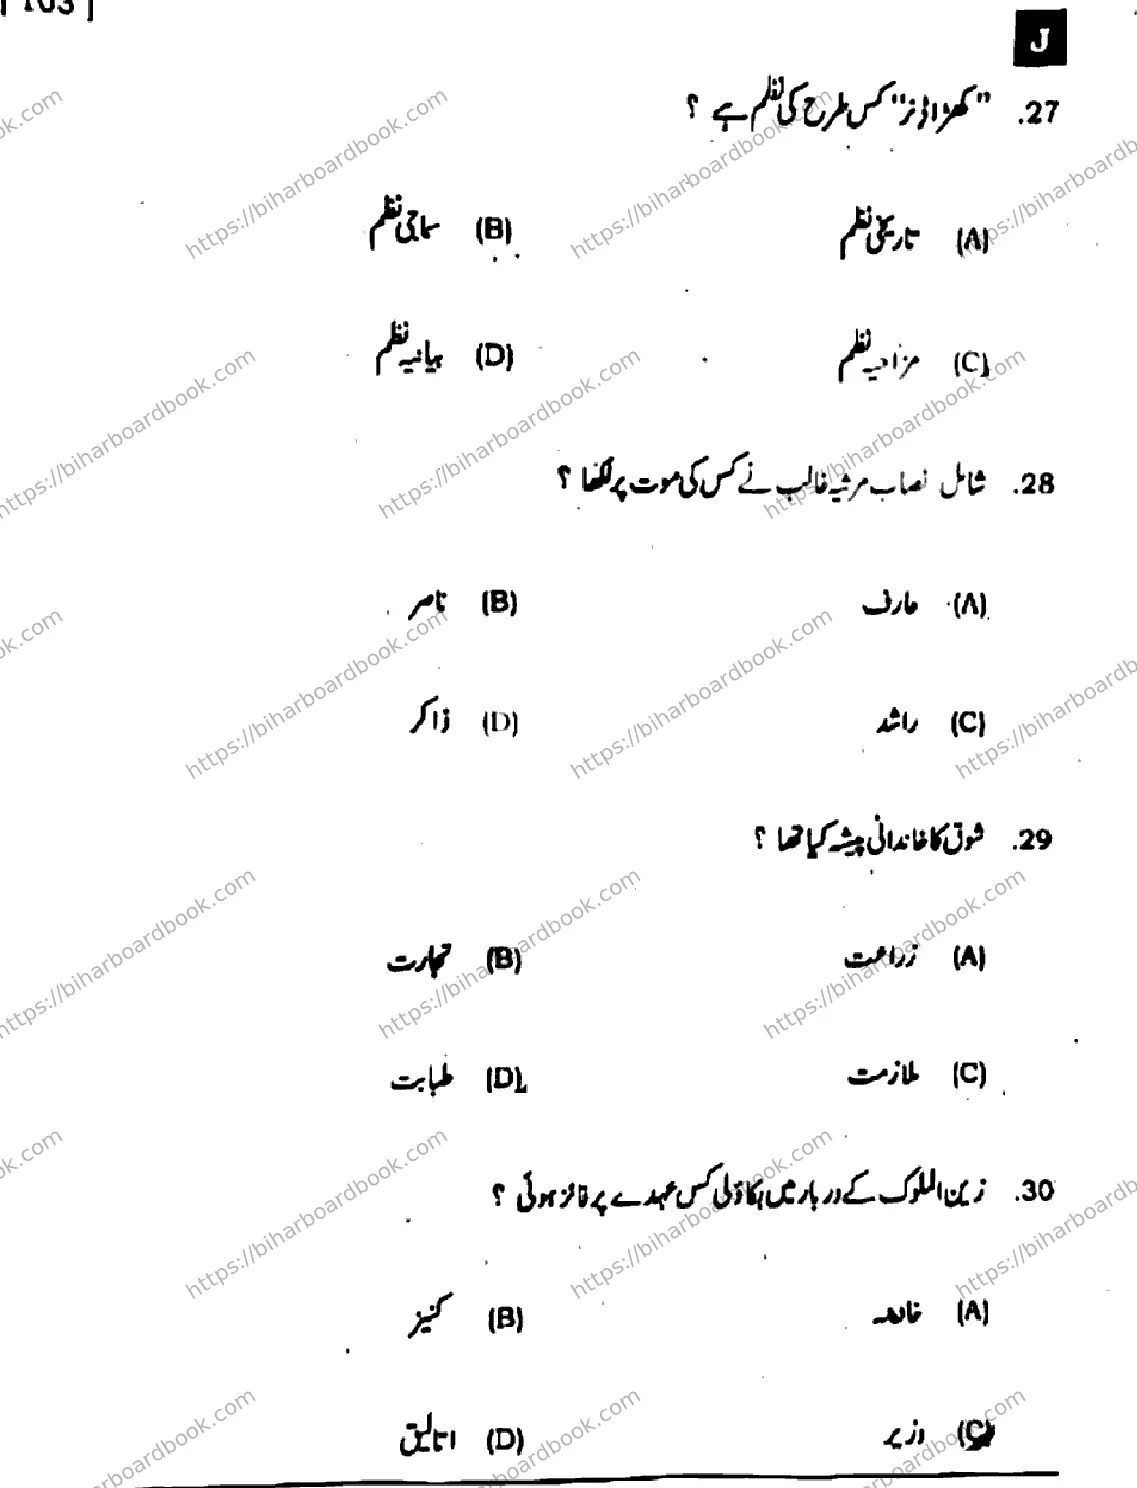 [ 103 ]
J
27. "کھڑا ڈنر" کس طرح کی نظم ہے ؟
(A) تاریخی نظم (B) سماجی نظم
(C) مزاحیہ نظم (D) بیانیہ نظم
28. شامل نصاب مرثیہ غالب نے کس کی موت پر لکھا ؟
(A) عارف (B) ناصر
(C) راشد (D) ذاکر
29. شوق کا خاندانی پیشہ کیا تھا ؟
(A) زراعت (B) تجارت
(C) ملازمت (D) طبابت
30. زین الملوک کے دربار میں بکاؤلی کس عہدے پر فائز ہوئی ؟
(A) خادمہ (B) کنیز
(C) وزیر (D) اتالیق
https://biharboardbook.com